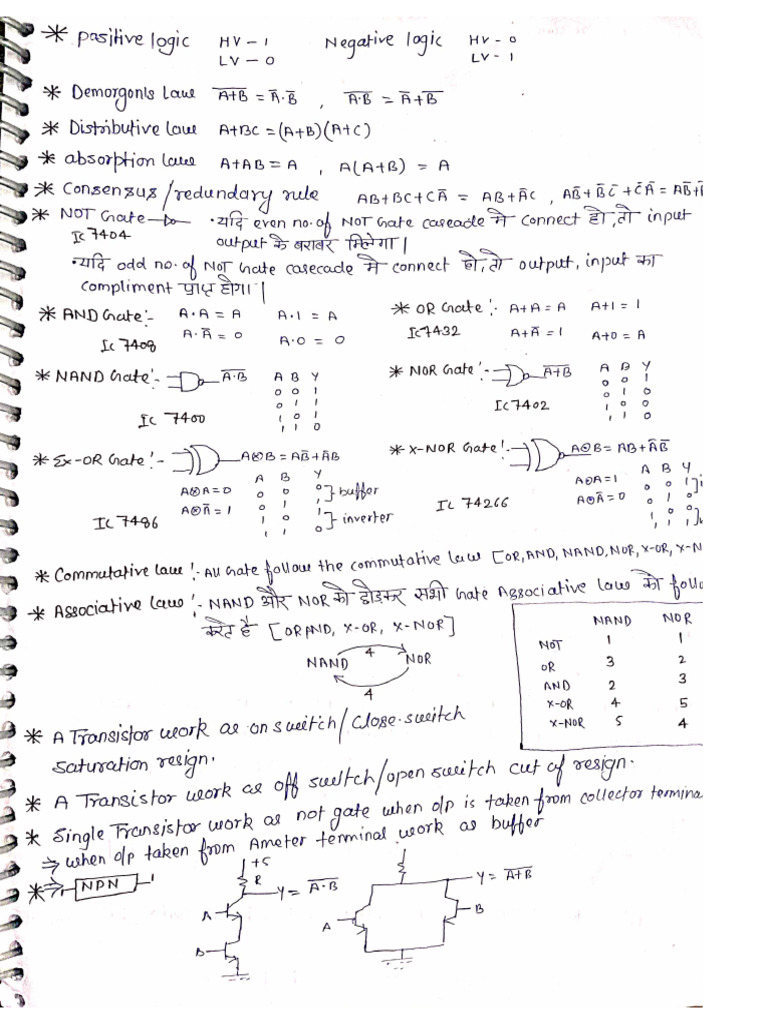 * Positive logic HV - 1 Negative logic HV - 0
LV - 0 LV - 1
* Demorgon's Law A̅+̅B̅ = A̅·B̅ , A̅·̅B̅ = A̅+B̅
* Distributive law A+BC = (A+B)(A+C)
* absorption law A+AB = A , A(A+B) = A
* Consensus/redundary rule AB+BC+CA̅ = AB+A̅C , AB̅+B̅C̅+C̅A̅ = AB̅+
* NOT Gate • यदि even no. of NOT Gate caseade मे connect हो, तो input
IC 7404 output के बराबर मिलेगा |
• यदि odd no. of NOT Gate casecade मे connect हो, तो output, input का
compliment प्राप्त होगा |
* AND Gate :- A·A = A A·1 = A * OR Gate :- A+A = A A+1 = 1
IC 7408 A·A̅ = 0 A·0 = 0 IC 7432 A+A̅ = 1 A+0 = A
* NAND Gate :- A̅·̅B̅ A B Y * NOR Gate :- A̅+̅B̅ A B Y
0 0 1 0 0 1
0 1 1 0 1 0
IC 7400 1 0 1 IC 7402 1 0 0
1 1 0 1 1 0
* Ex-OR Gate :- A⊗B = AB̅+A̅B * X-NOR Gate :- A⊙B = AB+A̅B̅
A B Y A B Y
A⊗A = 0 0 0 0 } buffer A⊙A = 1 0 0 1 } i
A⊗A̅ = 1 0 1 1 A⊗A̅ = 0 0 1 0
IC 7486 1 0 1 } inverter IC 74266 1 0 0 }
1 1 0 1 1 1
* Commutative law :- All Gate follow the commutative law [OR, AND, NAND, NOR, X-OR, X-N
* Associative law :- NAND और NOR को छोडकर सभी Gate Associative law को follo
करते है [OR AND, X-OR, X-NOR]
NAND 4 NOR
4
NAND NOR
NOT 1 1
OR 3 2
AND 2 3
X-OR 4 5
X-NOR 5 4
* A Transistor work as on switch/close switch
saturation resign.
* A Transistor work as off switch/open switch cut of resign.
* Single Transistor work as not gate when o/p is taken from collector termina
⇒ when o/p taken from Ameter terminal work as buffer
* ⇒ NPN
+5
R Y = A̅·̅B̅ Y = A̅+̅B̅
A A B
B